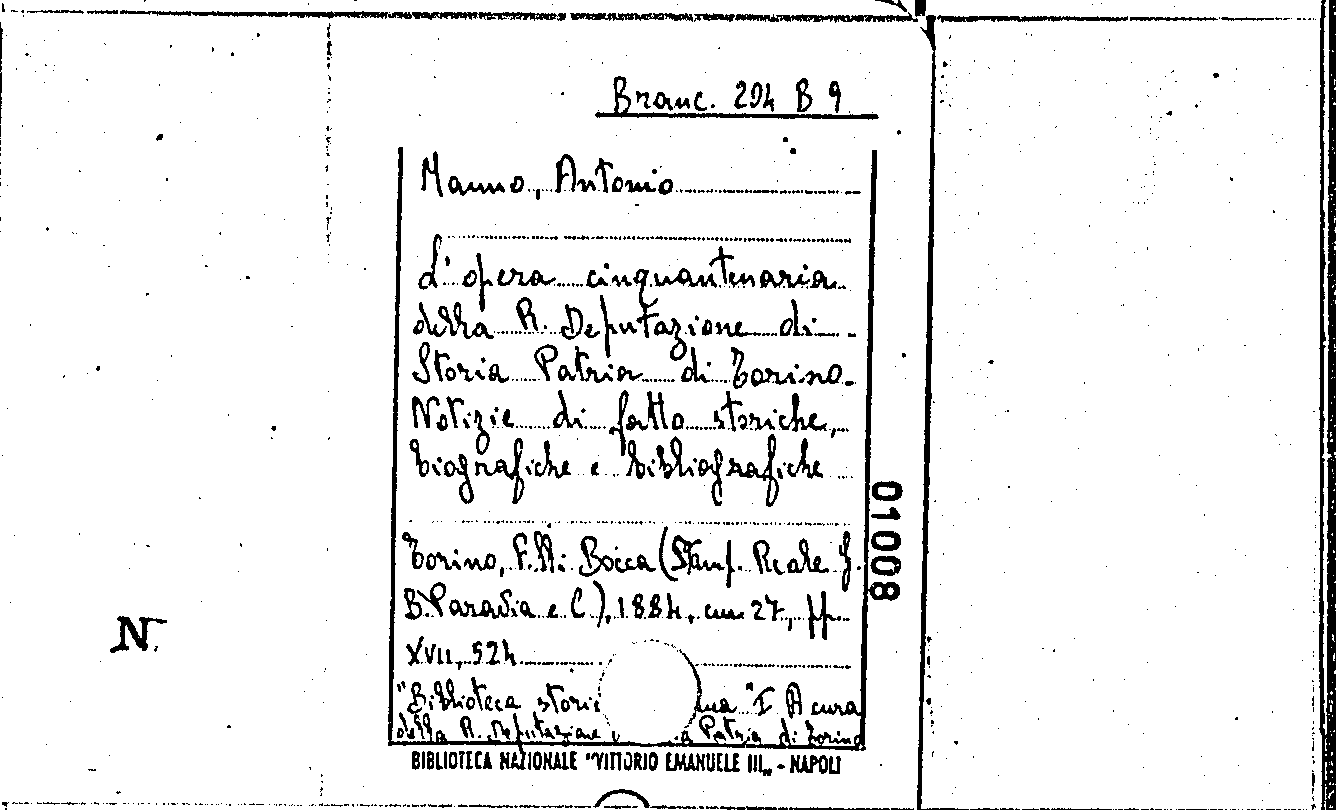 Branc. 294 B 9
Manno, Antonio
L'opera cinquantenaria
della R. Deputazione di
Storia Patria di Torino.
Notizie di fatto storiche,
biografiche e bibliografiche
Torino, F.lli Bocca (Stamp. Reale G.
B. Paravia e C.), 1884, cm. 27, pp.
XVII, 524
"Biblioteca stori na" I A cura
della R. Deputazione a Patria di Torino
BIBLIOTECA NAZIONALE "VITTORIO EMANUELE III„ - NAPOLI
01008
N.